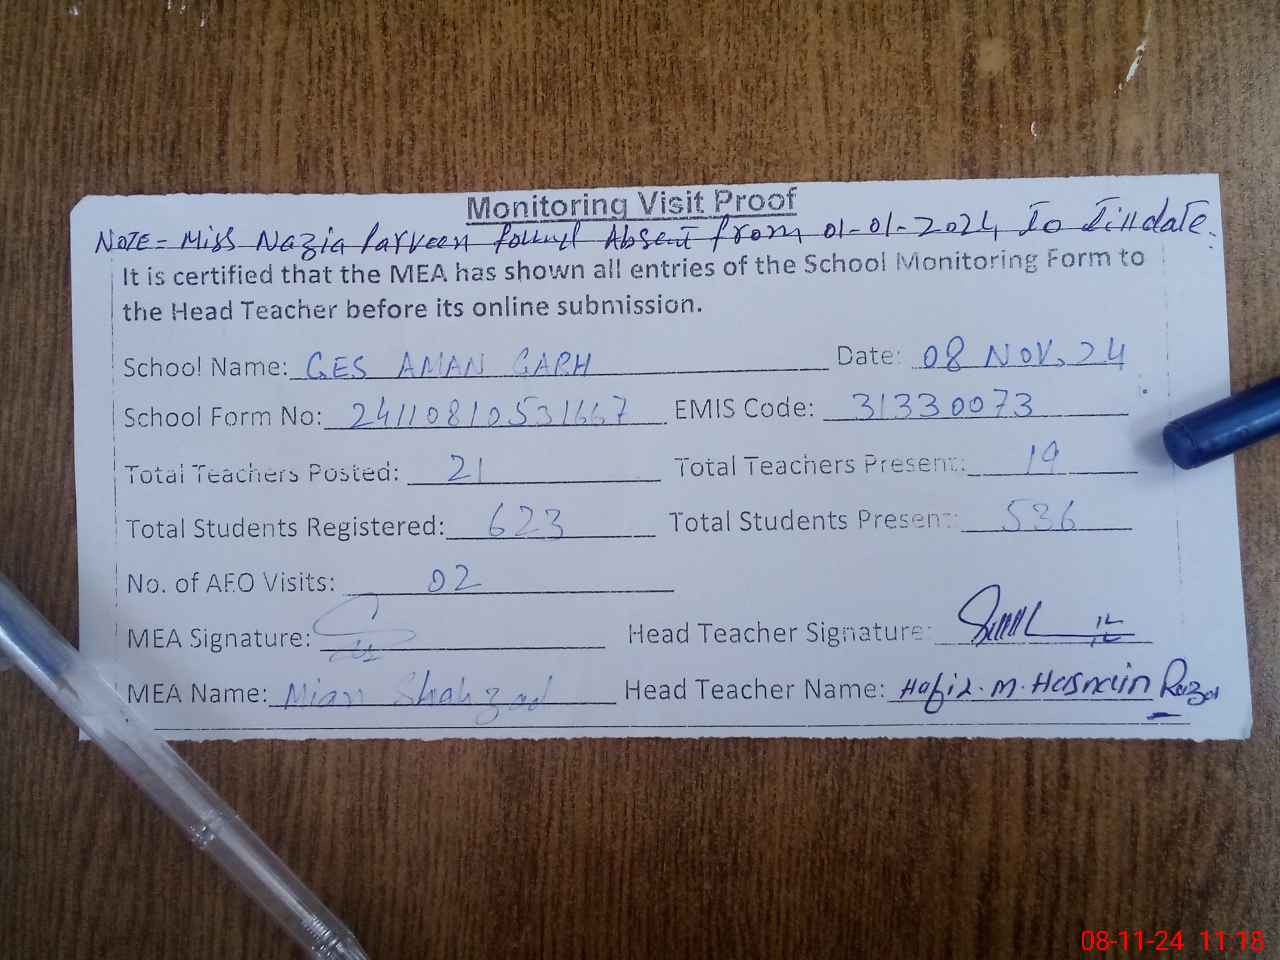 Monitoring Visit Proof
NOTE - Miss Nazia Parveen found Absent from 01-01-2024 To Till date.
It is certified that the MEA has shown all entries of the School Monitoring Form to
the Head Teacher before its online submission.
School Name: GES AMAN GARH Date: 08 NOV. 24
School Form No: 24110810531667 EMIS Code: 31330073
Total Teachers Posted: 21 Total Teachers Present: 19
Total Students Registered: 623 Total Students Present: 536
No. of AEO Visits: 02
MEA Signature: Head Teacher Signature:
MEA Name: Mian Shahzad Head Teacher Name: Hafiz. M. Hasnain Raza
08-11-24 11:18